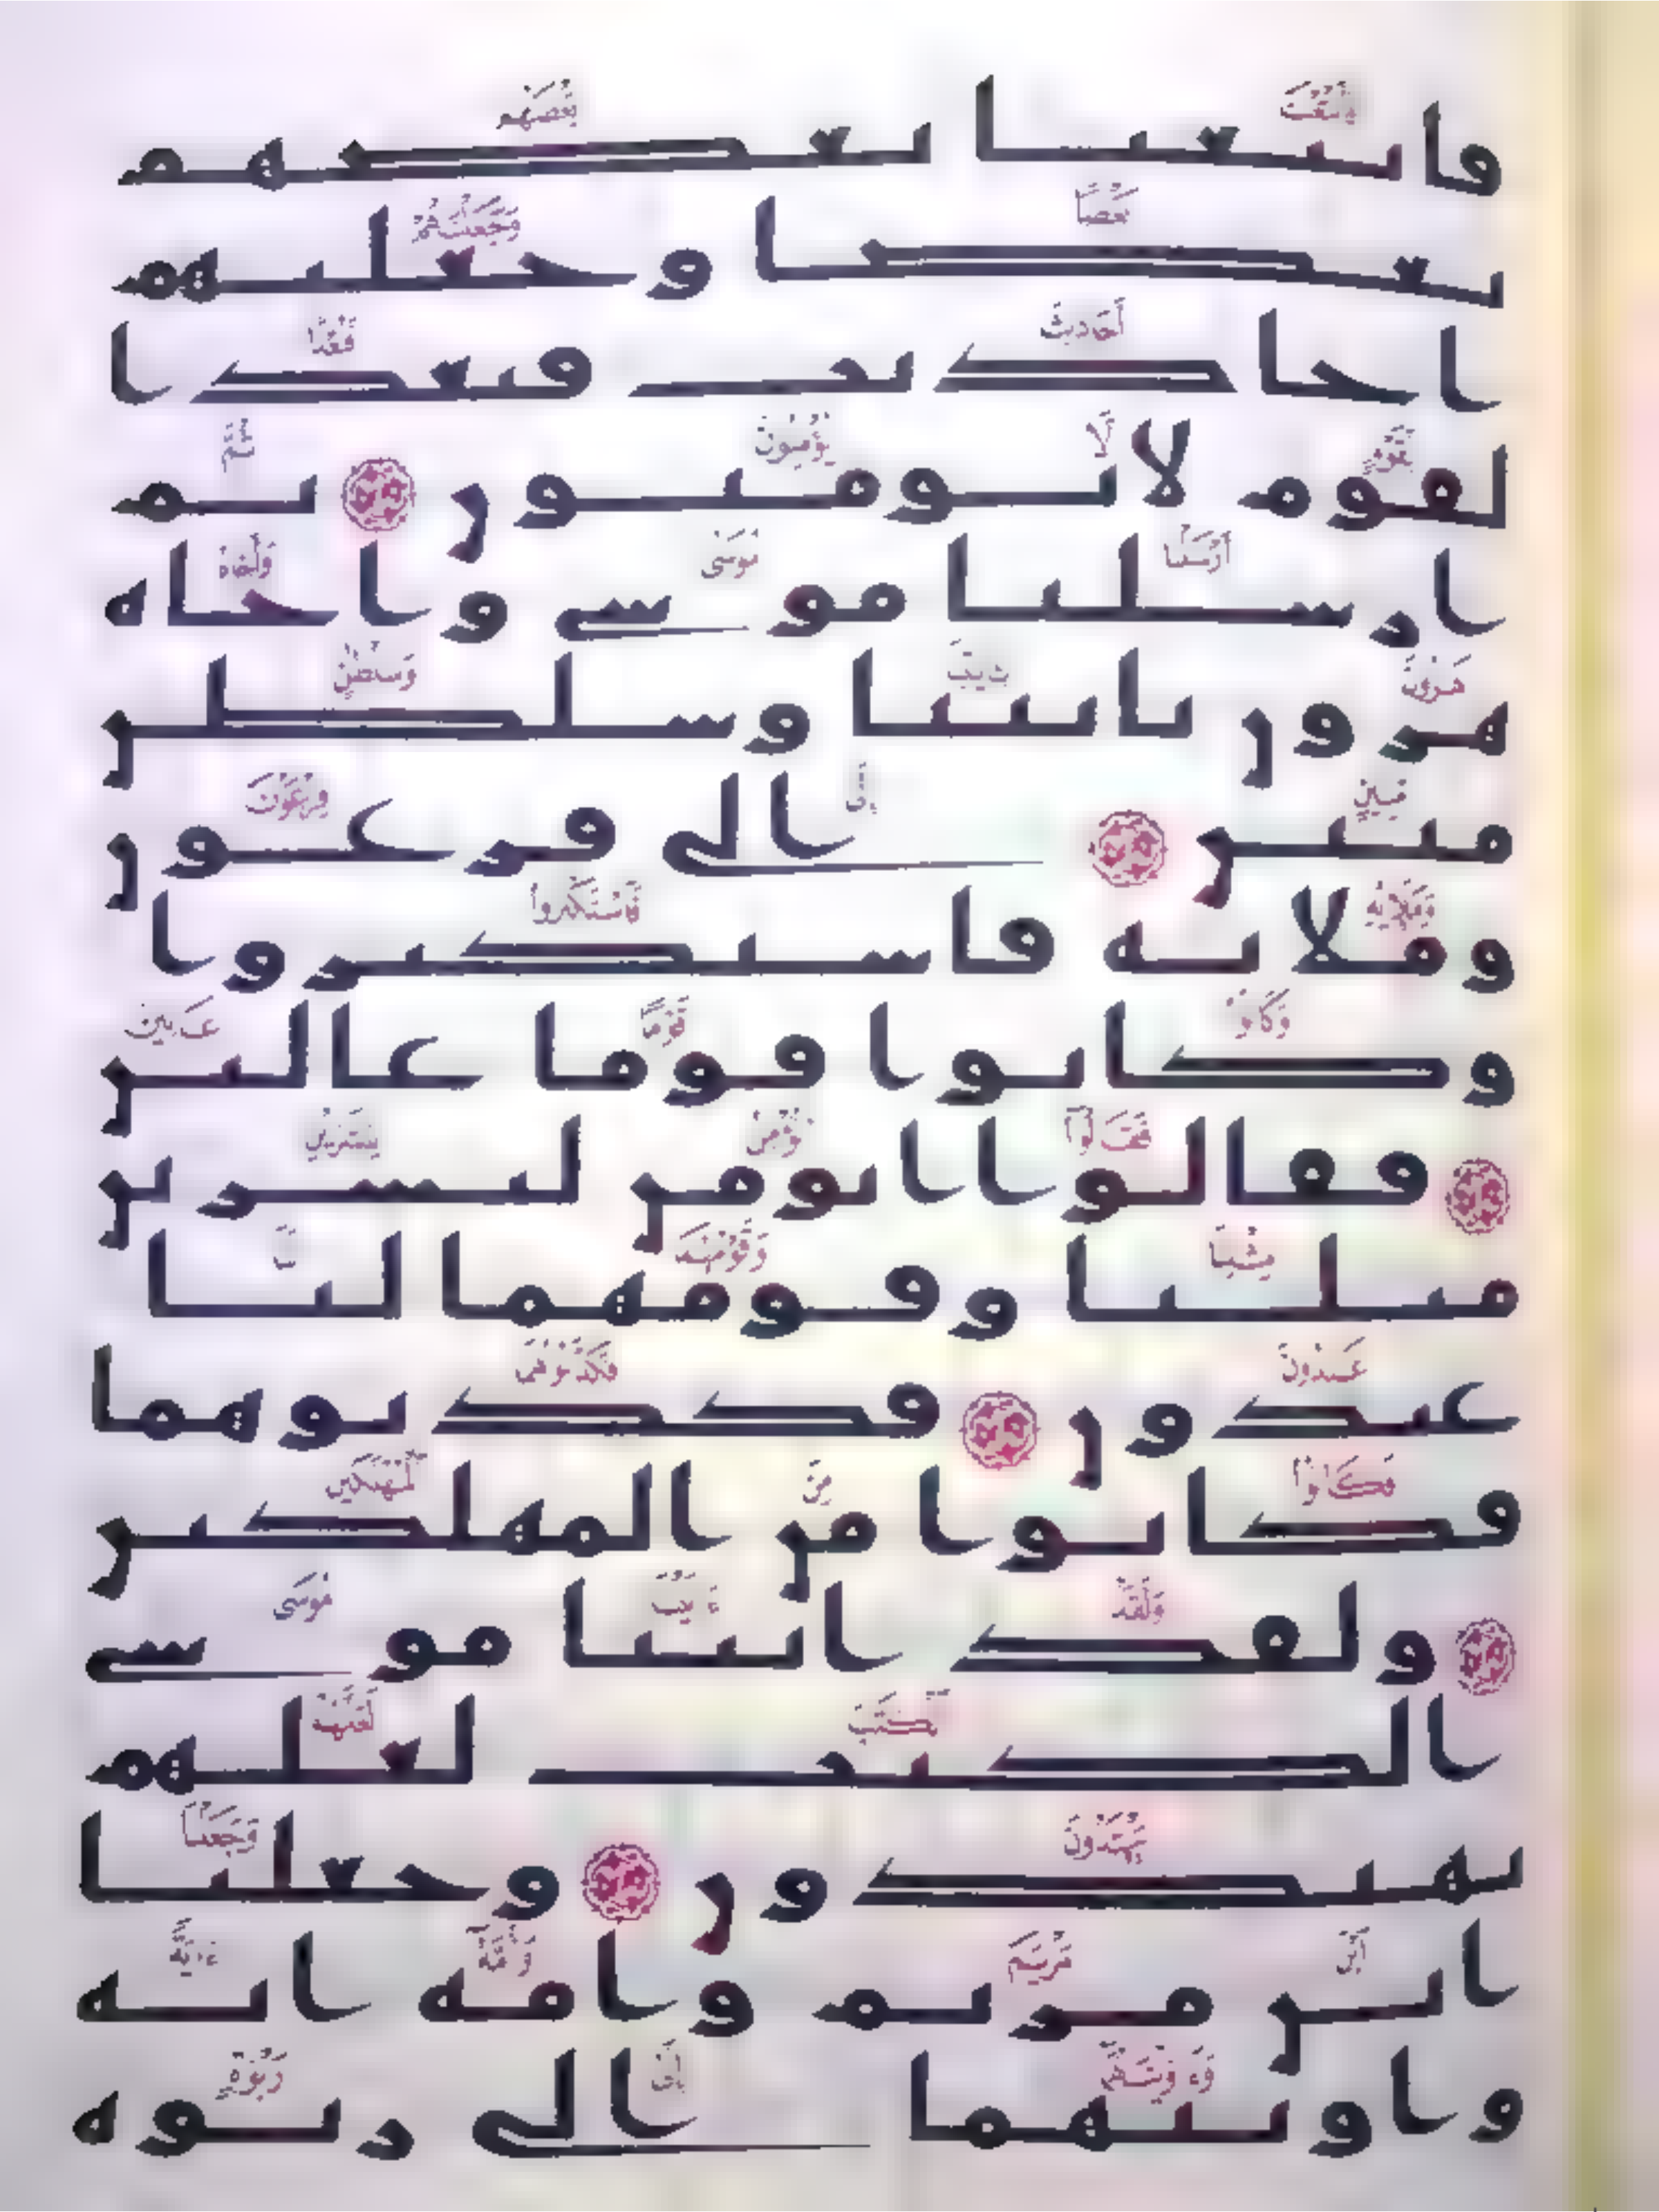 فاتبعنا بعضهم
بعضا وجعلنهم
احاديث فبعدا
لقوم لا يومنون ثم
ارسلنا موسى واخاه
هرون بايتنا وسلطن
مبين الى فرعون
وملايه فاستكبروا
وكانوا قوما عالين
فقالوا انومن لبشرين
مثلنا وقومهما لنا
عبدون فكذبوهما
فكانوا من المهلكين
ولقد اتينا موسى
الكتب لعلهم
يهتدون وجعلنا
ابن مريم وامه ايه
واوينهما الى ربوه